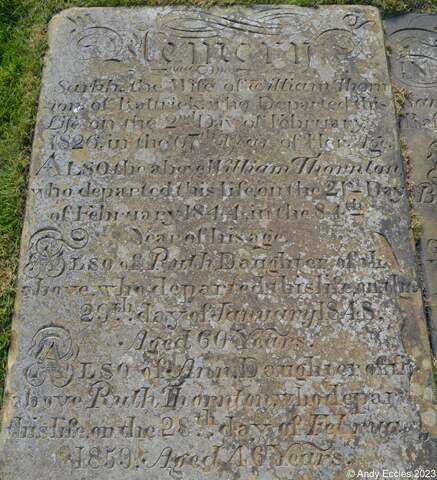 Memory
Sarah, the Wife of William Thorn
ton of Rattrick who Departed this
Life on the 2nd Day of February
1826, in the 67th Year of Her Age
ALSO the above William Thornton
who departed this life on the 21st Day
of February 1844, in the 84th
Year of his age
ALSO of Ruth Daughter of the
above, who departed this life, on the
29th day of January 1848.
Aged 60 Years.
ALSO of Ann, Daughter of th
above Ruth Thornton, who depar
this life, on the 28th day of Februay
1859. Aged 46 Years
© Andy Eccles 2023